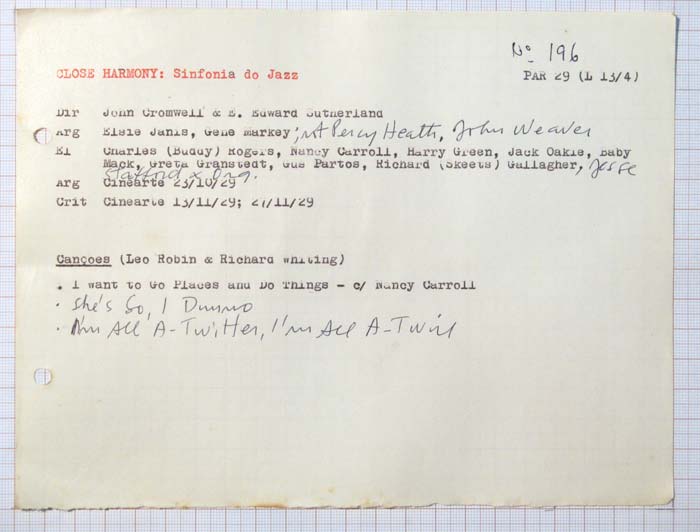 Nº 196
CLOSE HARMONY: Sinfonia do Jazz
PAR 29 (L 13/4)
Dir John Cromwell & E. Edward Sutherland
Arg Elsie Janis, Gene Markey; Percy Heath, John Weaver
El Charles (Buddy) Rogers, Nancy Carroll, Harry Green, Jack Oakie, Baby
Mack, Greta Granstedt, Gus Partos, Richard (Skeets) Gallagher, Jesse
Stafford & Orq.
Arg Cinearte 23/10/29
Crit Cinearte 13/11/29; 27/11/29
Canções (Leo Robin & Richard Whiting)
. I want to Go Places and Do Things - c/ Nancy Carroll
. She's So, I Dunno
. I'm All A-Twitter, I'm All A-Twirl